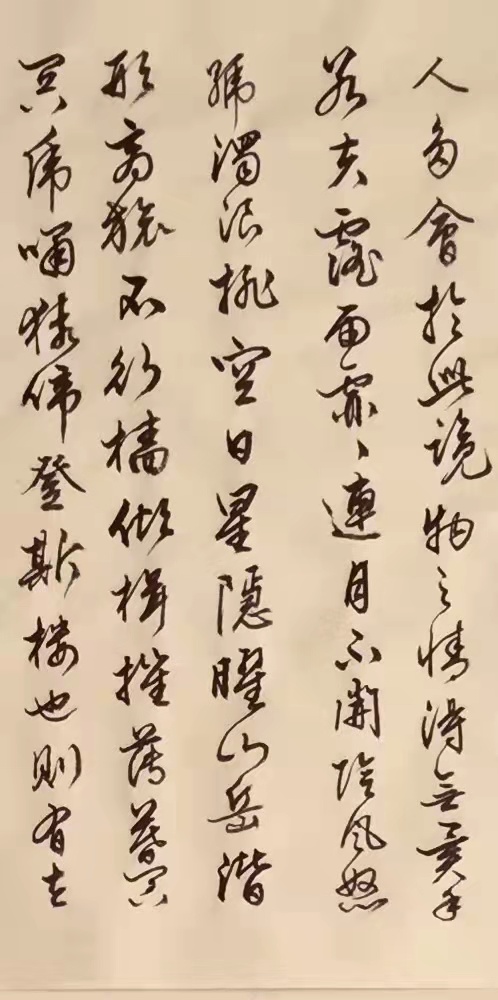 人多會於此覽物之情得無異乎
若夫霪雨霏〻連月不開陰風怒
號濁浪排空日星隱曜山岳潜
形商旅不行檣傾楫摧薄暮冥
冥虎嘯猿啼登斯樓也則有去